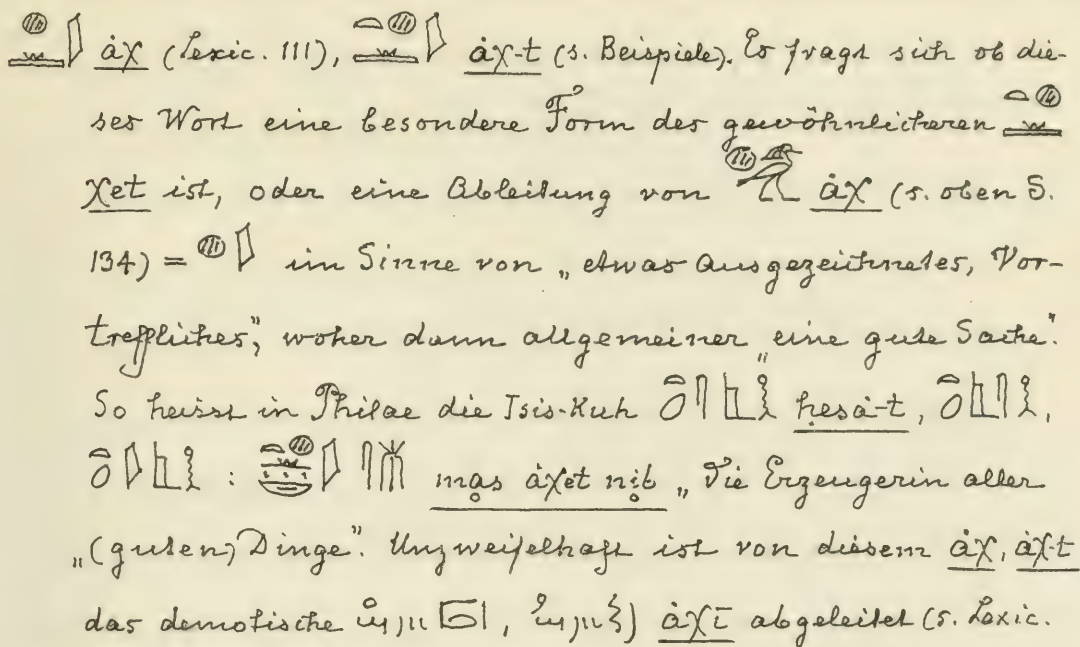 ȧχ (Lexic. III), ȧχ-t (s. Beispiele). Es fragt sich ob die-
ses Wort eine besondere Form des gewöhnlicheren
χet ist, oder eine Ableitung von ȧχ (s. oben S.
134) = im Sinne von „etwas Ausgezeichnetes, Vor-
treffliches", woher dann allgemeiner „eine gute Sache".
So heisst in Philae die Isis-Kuh ḥesȧ-t,
: mạs ȧχet nịb „die Erzeugerin aller
„(guten) Dinge". Unzweifelhaft ist von diesem ȧχ, ȧχ-t
das demotische , ) ȧχī abgeleitet (s. Lexic.